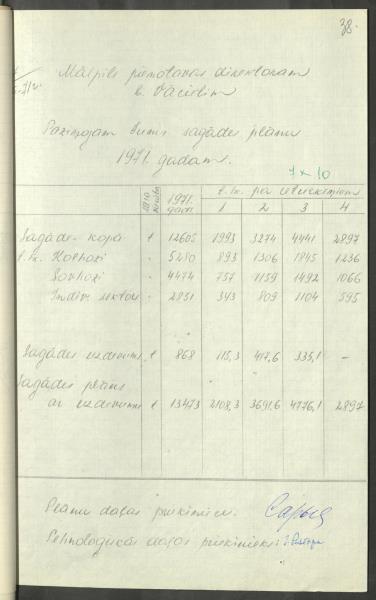 38.
Mālpils pienotavas direktoram
b. Vācietim
Paziņojam Jums sagādes plānu
1971. gadam.
7 x 10
1971. gads t.sk. pa ceturkšņiem
1 2 3 4
Sagāde kopā t 12605 1993 3274 4441 2897
t.sk. Kolhozi " 5280 893 1306 1845 1236
Sovhozi " 4474 757 1159 1492 1066
Indiv. sektors " 2851 343 809 1104 595
Sagādes uzdevums t 868 115,3 417,6 335,1 -
Sagādes plāns
ar uzdevumu t 13473 2108,3 3691,6 4776,1 2897
Plānu daļas priekšnieks:
Tehnoloģiskās daļas priekšnieks: